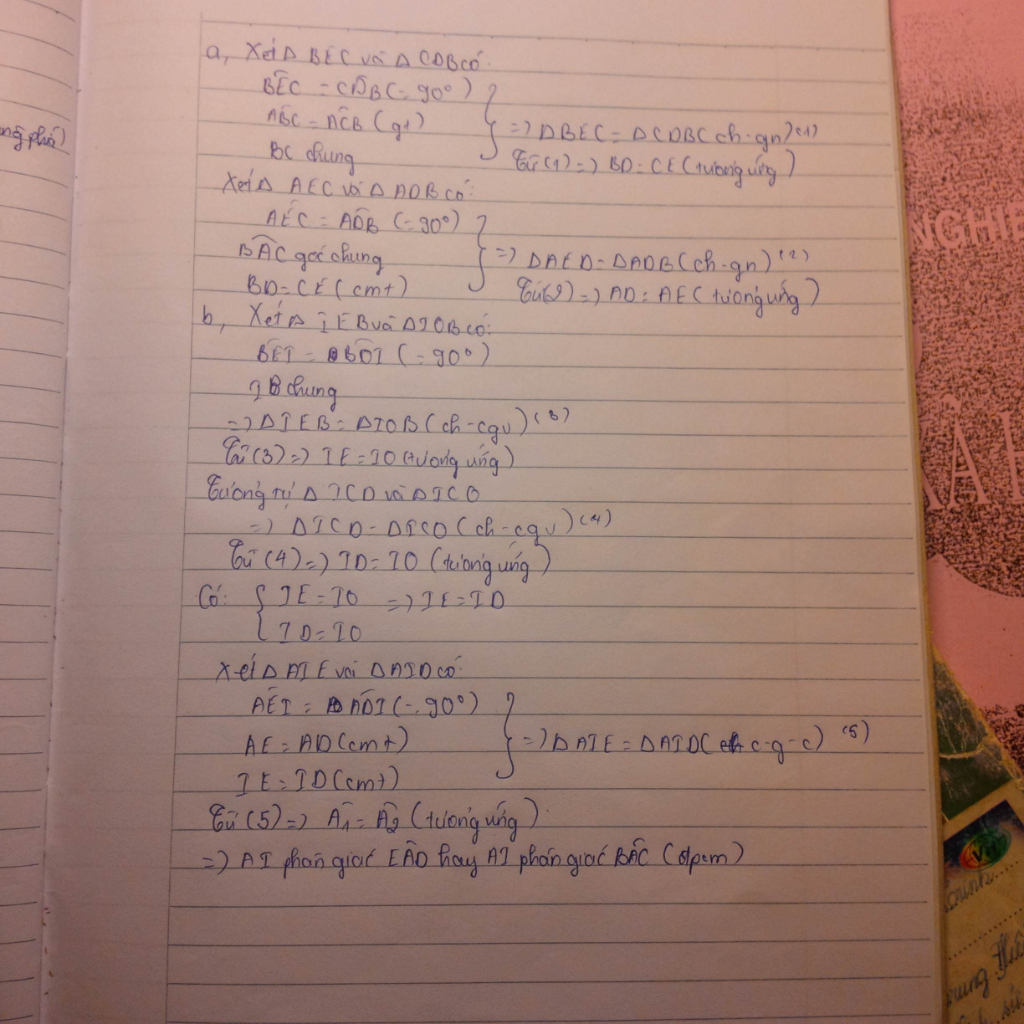 ng phố)
a, Xét Δ BEC và Δ CDB có:
BÊC = CD̂B (= 90°)
AB̂C = AĈB (gt)
BC chung
=> ΔBEC = ΔCDB (ch-gn) (1)
Từ (1) => BD = CE (tương ứng)
Xét Δ AEC và Δ ADB có:
AÊC = AD̂B (= 90°)
BÂC góc chung
BD = CE (cmt)
=> ΔAED = ΔADB (ch-gn) (2)
Từ (2) => AD = AE (tương ứng)
b, Xét Δ IEB và ΔIOB có:
BÊI = BÔI (= 90°)
IB chung
=> ΔIEB = ΔIOB (ch-cgv) (3)
Từ (3) => IE = IO (tương ứng)
Tương tự Δ ICD và ΔICO
=> ΔICD = ΔICO (ch-cgv) (4)
Từ (4) => ID = IO (tương ứng)
Có: { IE = IO => IE = ID
ID = IO
Xét Δ AIE và ΔAID có:
AÊI = AD̂I (= 90°)
AE = AD (cmt)
IE = ID (cmt)
=> ΔAIE = ΔAID (c-g-c) (5)
Từ (5) => Â1 = Â2 (tương ứng)
=> AI phân giác EÂD hay AI phân giác BÂC (đpcm)
NGHIỆ